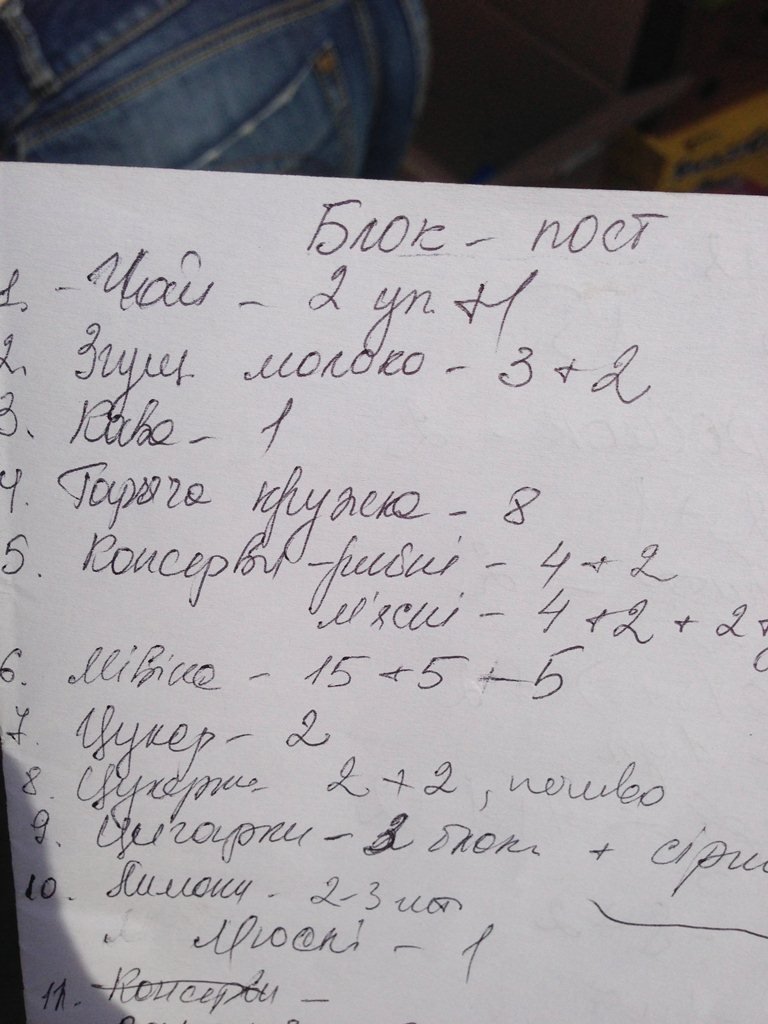 Блок - пост
1. - Чай - 2 уп. +1
2. Згущ молоко - 3 + 2
3. Кава - 1
4. Гаряча кружка - 8
5. Консерви - рибні - 4 + 2
м'ясні - 4 + 2 + 2 +
6. Мівіна - 15 + 5 + 5
7. Цукор - 2
8. Цукерки - 2 + 2, печиво
9. Цигарки - 2 блоки + сірни
10. Лимони - 2-3 шт
Мюслі - 1
11. Консерви -